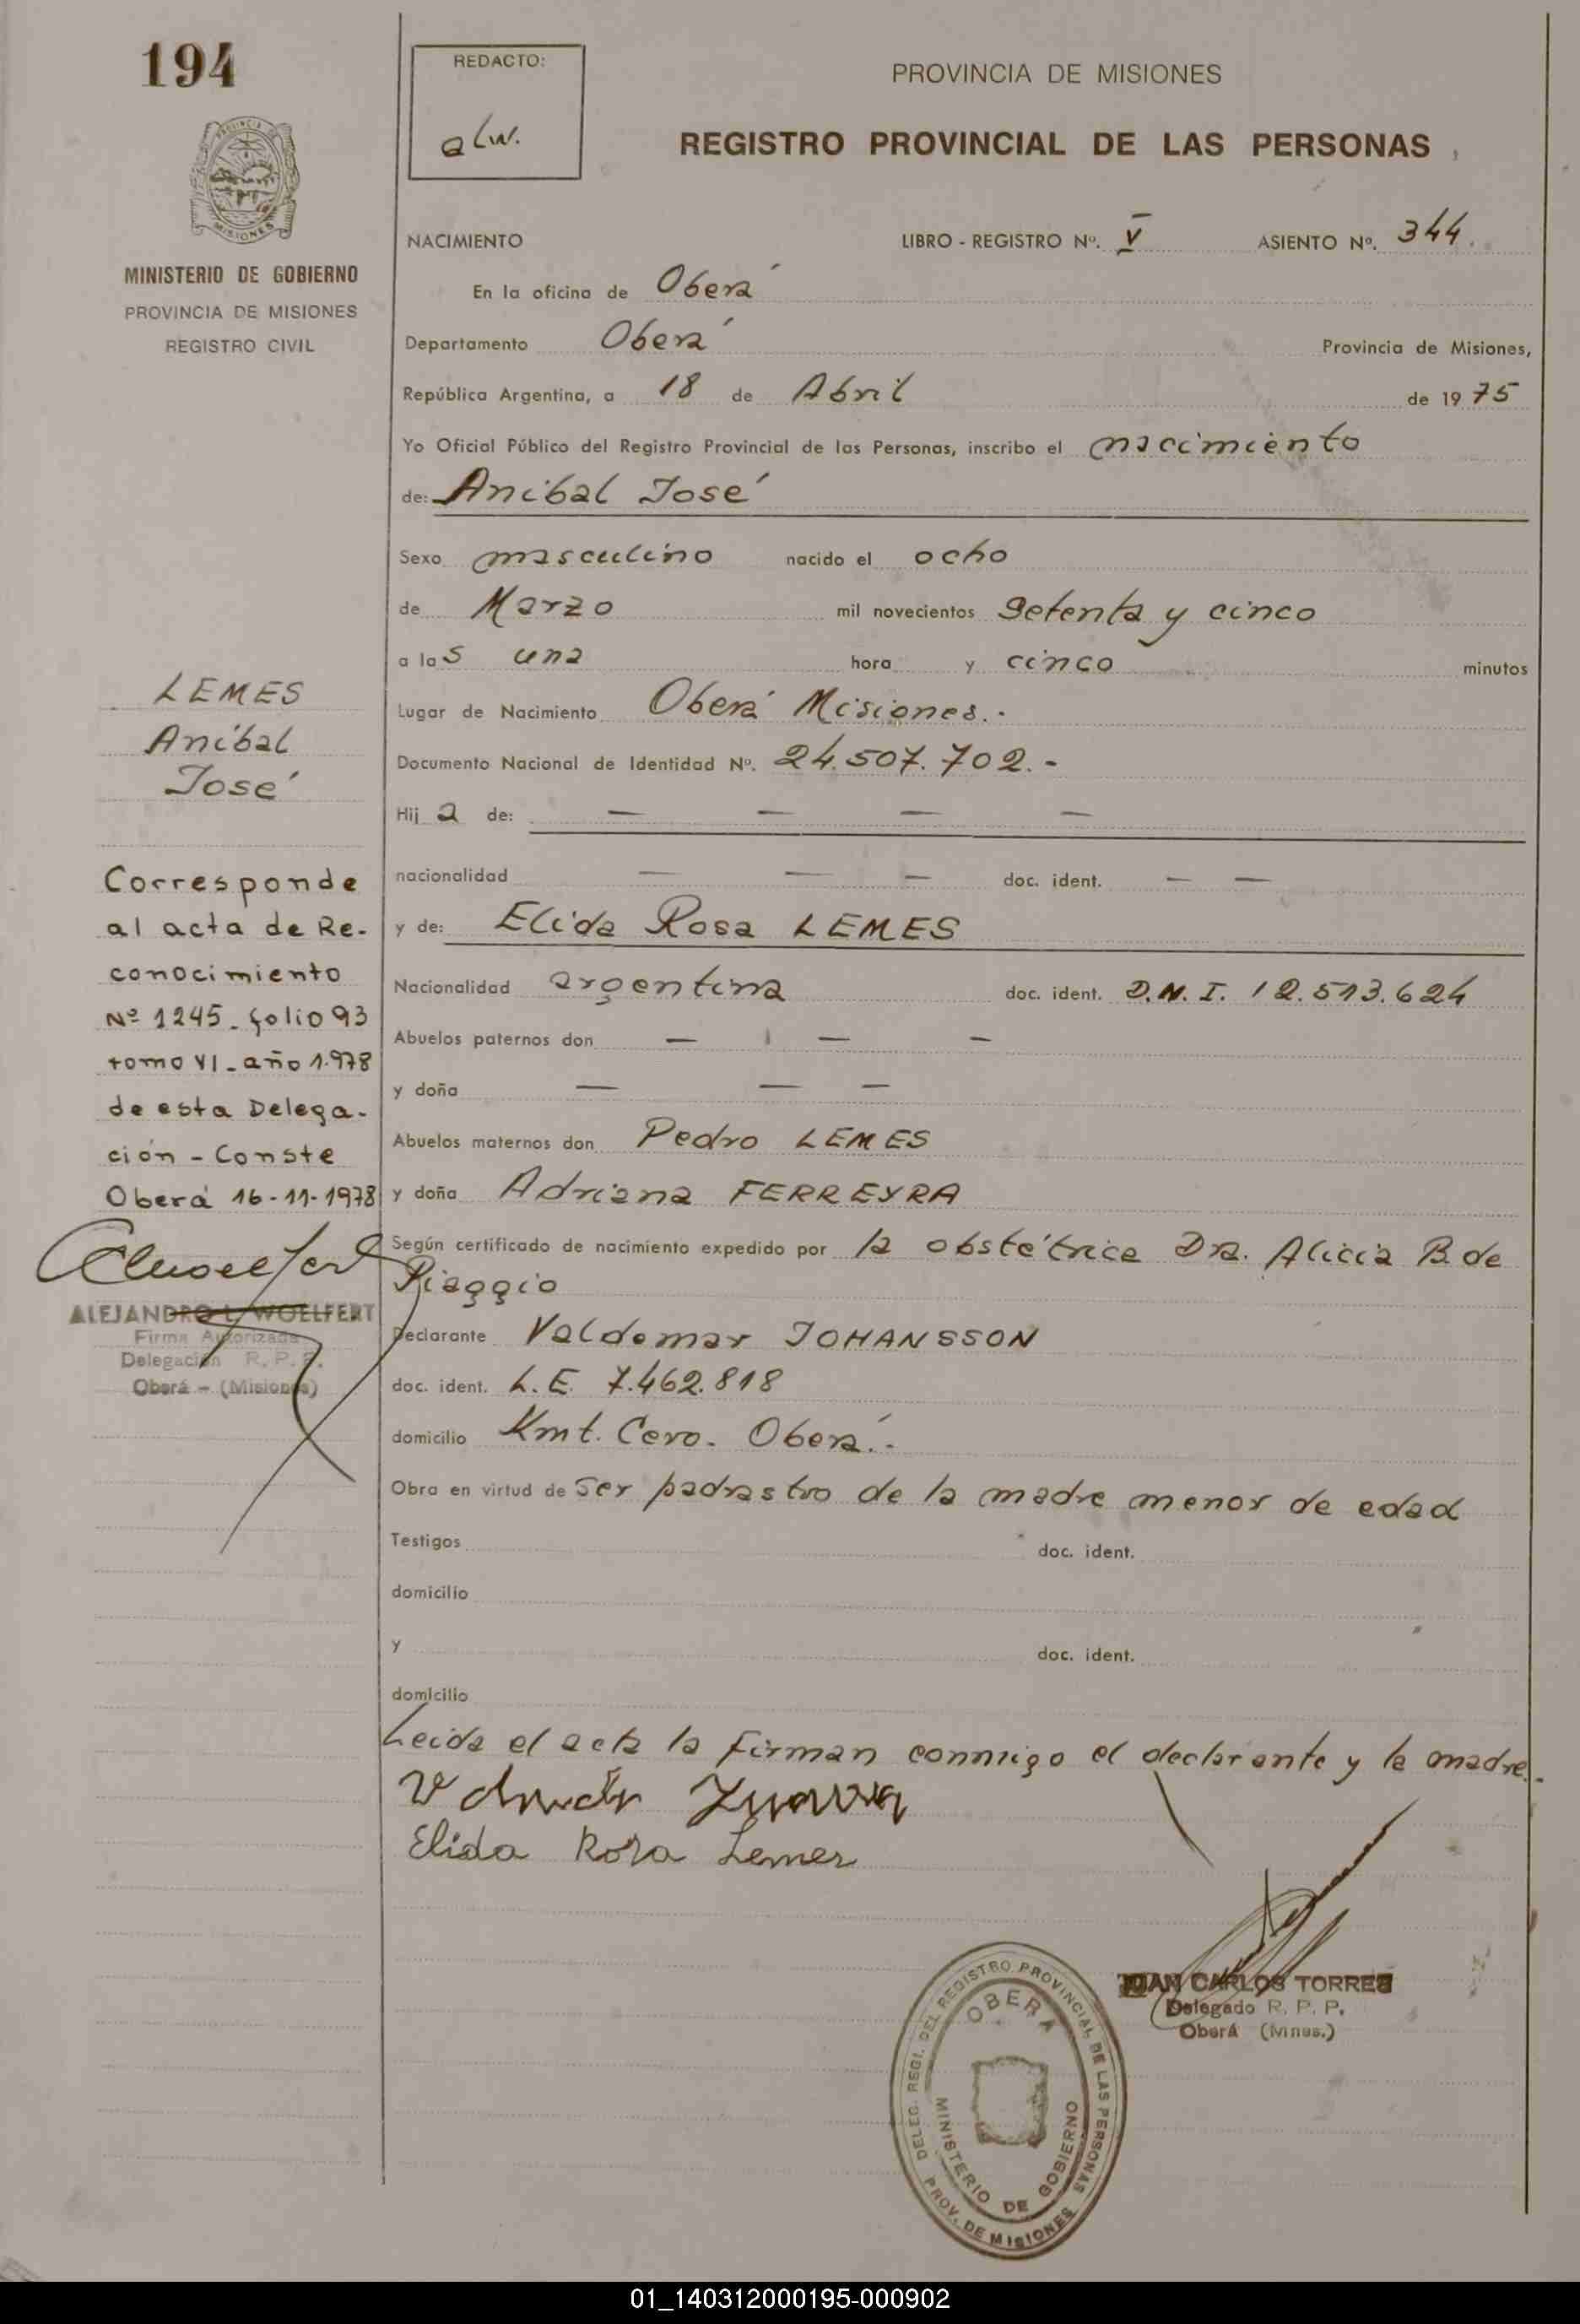 194
REDACTO:
alw.
PROVINCIA DE MISIONES
REGISTRO PROVINCIAL DE LAS PERSONAS
PROVINCIA DE
MISIONES
MINISTERIO DE GOBIERNO
PROVINCIA DE MISIONES
REGISTRO CIVIL
NACIMIENTO LIBRO - REGISTRO Nº. V ASIENTO Nº. 344.
En la oficina de Oberá
Departamento Oberá Provincia de Misiones,
República Argentina, a 18 de Abril de 1975
Yo Oficial Público del Registro Provincial de las Personas, inscribo el nacimiento
de: Anibal José
Sexo masculino nacido el ocho
de Marzo mil novecientos setenta y cinco
a las una hora y cinco minutos
Lugar de Nacimiento Oberá Misiones.-
Documento Nacional de Identidad Nº. 24.507.702.-
Hij a de: — — — —
nacionalidad — — — doc. ident. — —
y de: Elida Rosa LEMES
Nacionalidad argentina doc. ident. D.N.I. 12.513.624
Abuelos paternos don — — —
y doña — — —
Abuelos maternos don Pedro LEMES
y doña Adriana FERREYRA
Según certificado de nacimiento expedido por la obstétrice Dra. Alicia B. de
Piaggio
Declarante Valdemar JOHANSSON
doc. ident. L.E. 7.462.818
domicilio Kmt. Cero. Oberá.-
Obra en virtud de ser padrastro de la madre menor de edad
Testigos doc. ident.
domicilio
y doc. ident.
domicilio
Leida el acta la firman conmigo el declarante y la madre.-
Elida Rosa Lemes
LEMES
Anibal
José
Corresponde
al acta de Re-
conocimiento
Nº 1245- folio 93
tomo VI- año 1.978
de esta Delega-
ción - Conste
Oberá 16-11-1978
ALEJANDRO L. WOELFERT
Firma Autorizada
Delegación R. P. P.
Oberá - (Misiones)
JUAN CARLOS TORRES
Delegado R. P. P.
Oberá (Mnes.)
DELEG. REGI. DEL REGISTRO PROVINCIAL DE LAS PERSONAS
PROV. DE MISIONES
OBERA
MINISTERIO DE GOBIERNO
01_140312000195-000902